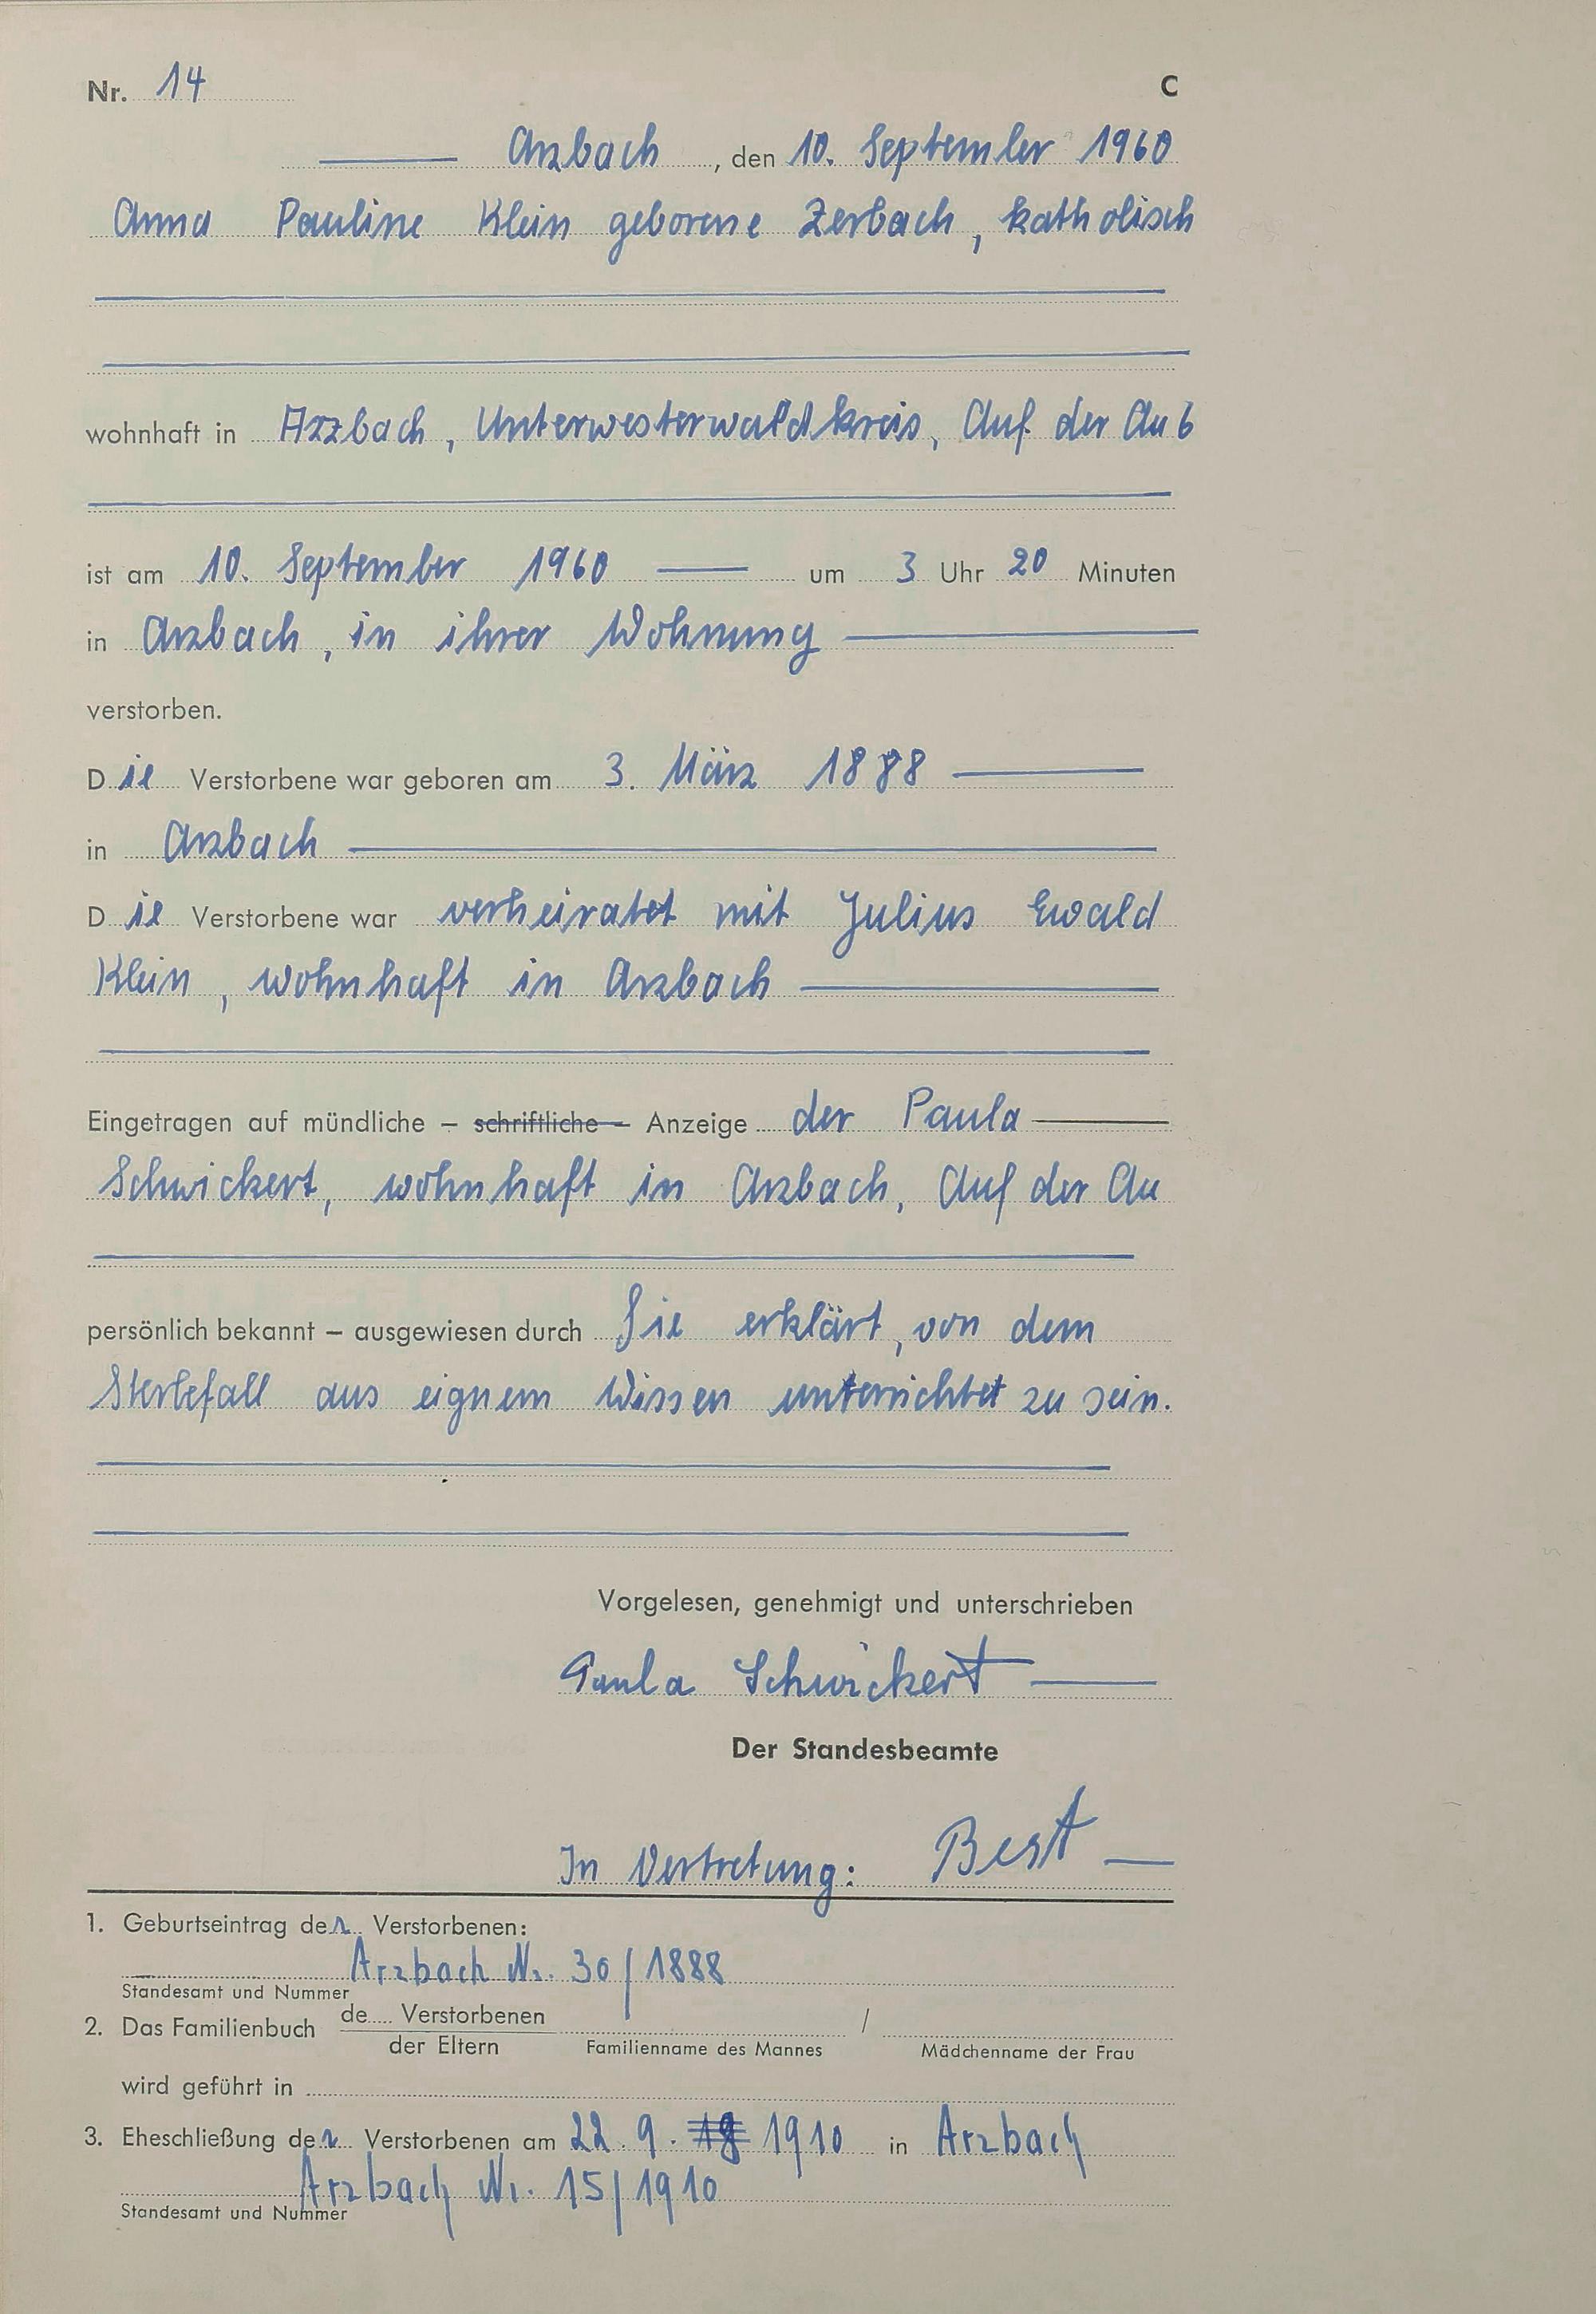 Nr. 14 C
Arzbach, den 10. September 1960
Anna Pauline Klein geborene Zerbach, katholisch
wohnhaft in Arzbach, Unterwesterwaldkreis, Auf der Au 6
ist am 10. September 1960 um 3 Uhr 20 Minuten
in Arzbach, in ihrer Wohnung
verstorben.
Die Verstorbene war geboren am 3. März 1888
in Arzbach
Die Verstorbene war verheiratet mit Julius Ewald
Klein, wohnhaft in Arzbach
Eingetragen auf mündliche – schriftliche – Anzeige der Paula
Schwickert, wohnhaft in Arzbach, Auf der Au
persönlich bekannt – ausgewiesen durch Sie erklärt, von dem
Sterbefall aus eignem Wissen unterrichtet zu sein.
Vorgelesen, genehmigt und unterschrieben
Paula Schwickert
Der Standesbeamte
In Vertretung: Best
1. Geburtseintrag der Verstorbenen:
Arzbach Nr. 30/1888
Standesamt und Nummer
2. Das Familienbuch de.... Verstorbenen /
der Eltern Familienname des Mannes Mädchenname der Frau
wird geführt in
3. Eheschließung der Verstorbenen am 22.9. 18 1910 in Arzbach
Arzbach Nr. 15/1910
Standesamt und Nummer